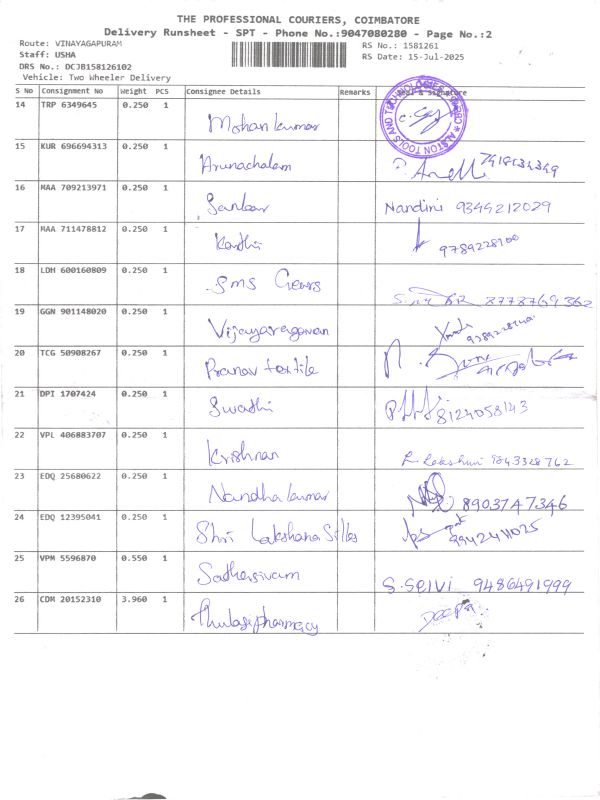 THE PROFESSIONAL COURIERS, COIMBATORE
Delivery Runsheet - SPT - Phone No.:9047080280 - Page No.:2
Route: VINAYAGAPURAM RS No.: 1581261
Staff: USHA RS Date: 15-Jul-2025
DRS No.: DCJB158126102
Vehicle: Two Wheeler Delivery
S No Consignment No Weight PCS Consignee Details Remarks Seal & Signature
14 TRP 6349645 0.250 1 Mohan kumar
ALSTON TOOLS AND TECHNOLOGIES
15 KUR 696694313 0.250 1 Arunachalam
16 MAA 709213971 0.250 1 Sankar Nandini 9344212029
17 MAA 711478812 0.250 1 Karthi 9789228100
18 LDH 600160809 0.250 1 SMS Gears 8778769362
19 GGN 901148020 0.250 1 Vijayaragavan
20 TCG 50908267 0.250 1 Pranav textile
21 DPI 1707424 0.250 1 Swathi 8124058143
22 VPL 406883707 0.250 1 Krishnan R. Lakshmi
23 EDQ 25680622 0.250 1 Nandha kumar 8903747346
24 EDQ 12395041 0.250 1 Shri Lakshana Silks 9942411025
25 VPM 5596870 0.550 1 Sadhasivam S. Selvi 9486491999
26 CDM 20152310 3.960 1 Thulasi pharmacy Deepa